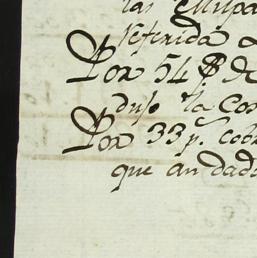 las
referida
Por 54 $ de
dujo la Cor
Por 33 p. cob
que an dad